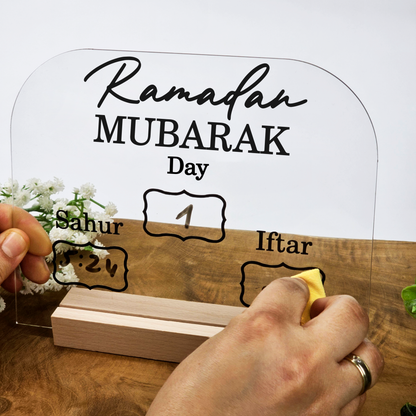 Ramadan
MUBARAK
Day
1
Sahur
Iftar
5:24